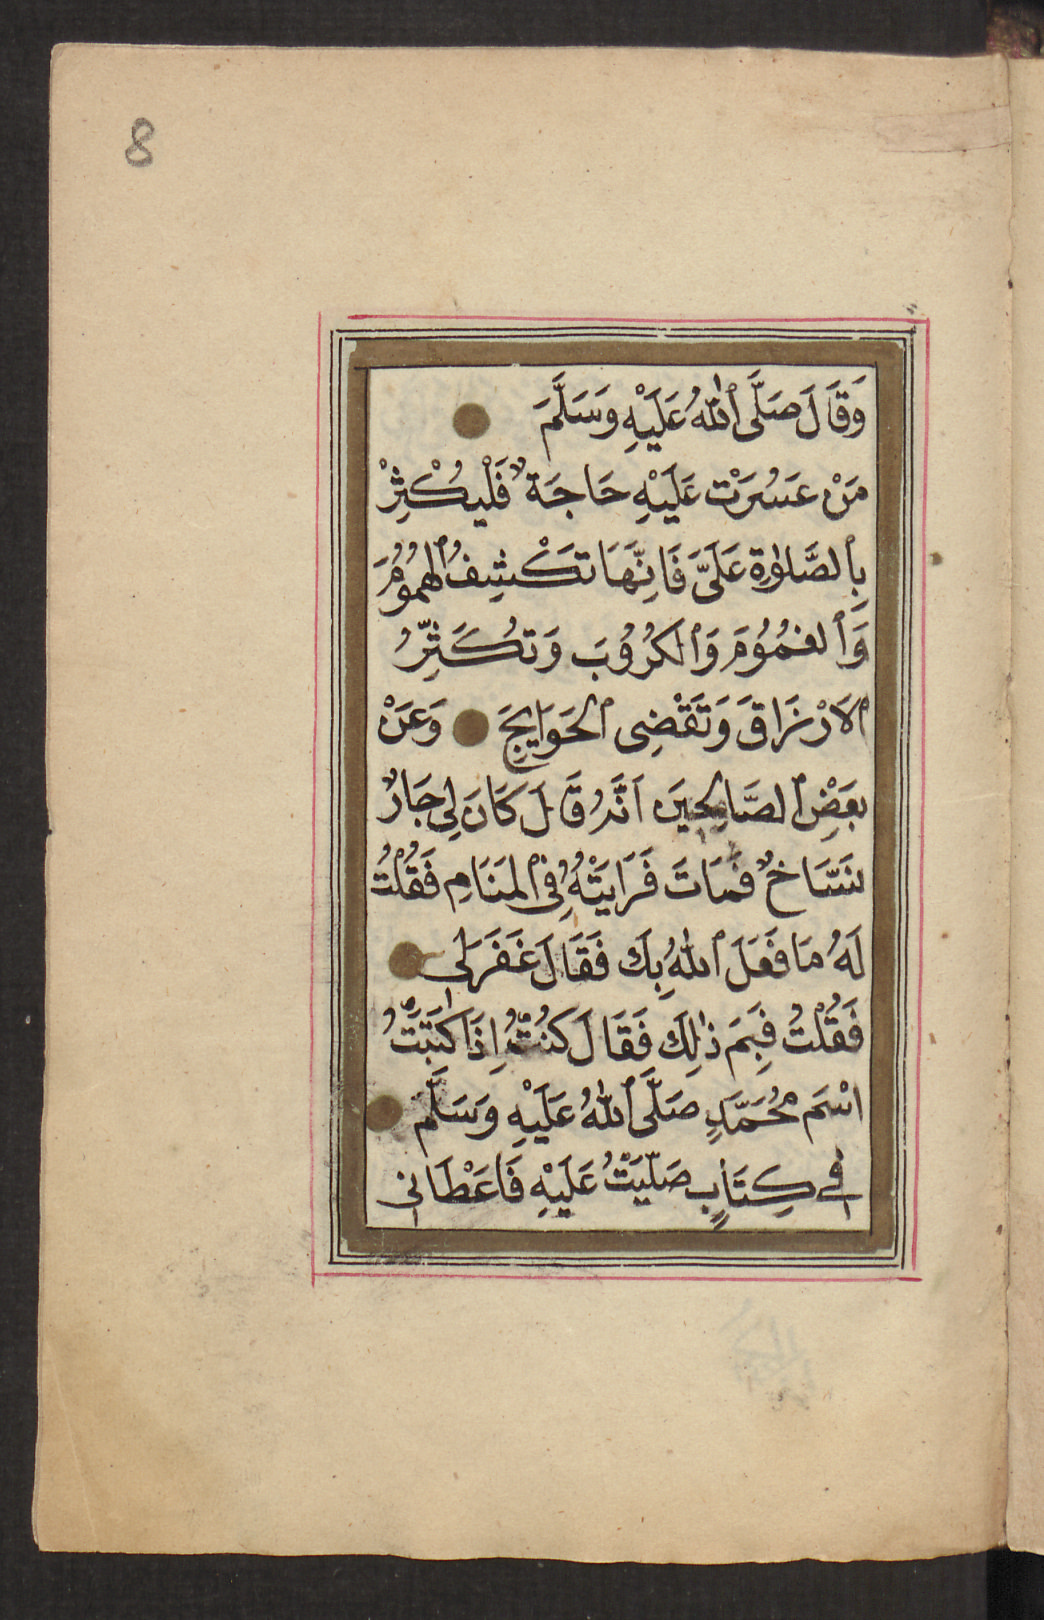 8
وَقَالَ صَلَّى ٱللّٰهُ عَلَيْهِ وَسَلَّمَ
مَنْ عَسُرَتْ عَلَيْهِ حَاجَةٌ فَلْيُكْثِرْ
بِٱلصَّلٰوةِ عَلَىَّ فَاِنَّهَا تَكْشِفُ ٱلهُمُومَ
وَٱلغُمُوُمَ وَٱلكُرُوُبَ وَتُكَثِّرُ
ٱلاَرْزَاقَ وَتَقْضِى ٱلحَوَايِجَ وَعَنْ
بَعْضِ ٱلصَّالِحِينَ اَنَّهُ قَالَ كَانَ لِى جَارٌ
نَسَّاخٌ فَمَاتَ فَرَايَتْهُ فِى ٱلمَنَامِ فَقُلْتُ
لَهُ مَا فَعَلَ ٱللّٰهُ بِكَ فَقَالَ غَفَرَ لِى
فَقُلْتُ فَبِمَ ذٰلِكَ فَقَالَ كُنْتُ اِذَا كَتَبْتُ
اسْمَ مُحَمَّدٍ صَلَّى ٱللّٰهُ عَلَيْهِ وَسَلَّمَ
فِى كِتَابٍ صَلَّيْتُ عَلَيْهِ فَاَعْطَانِى